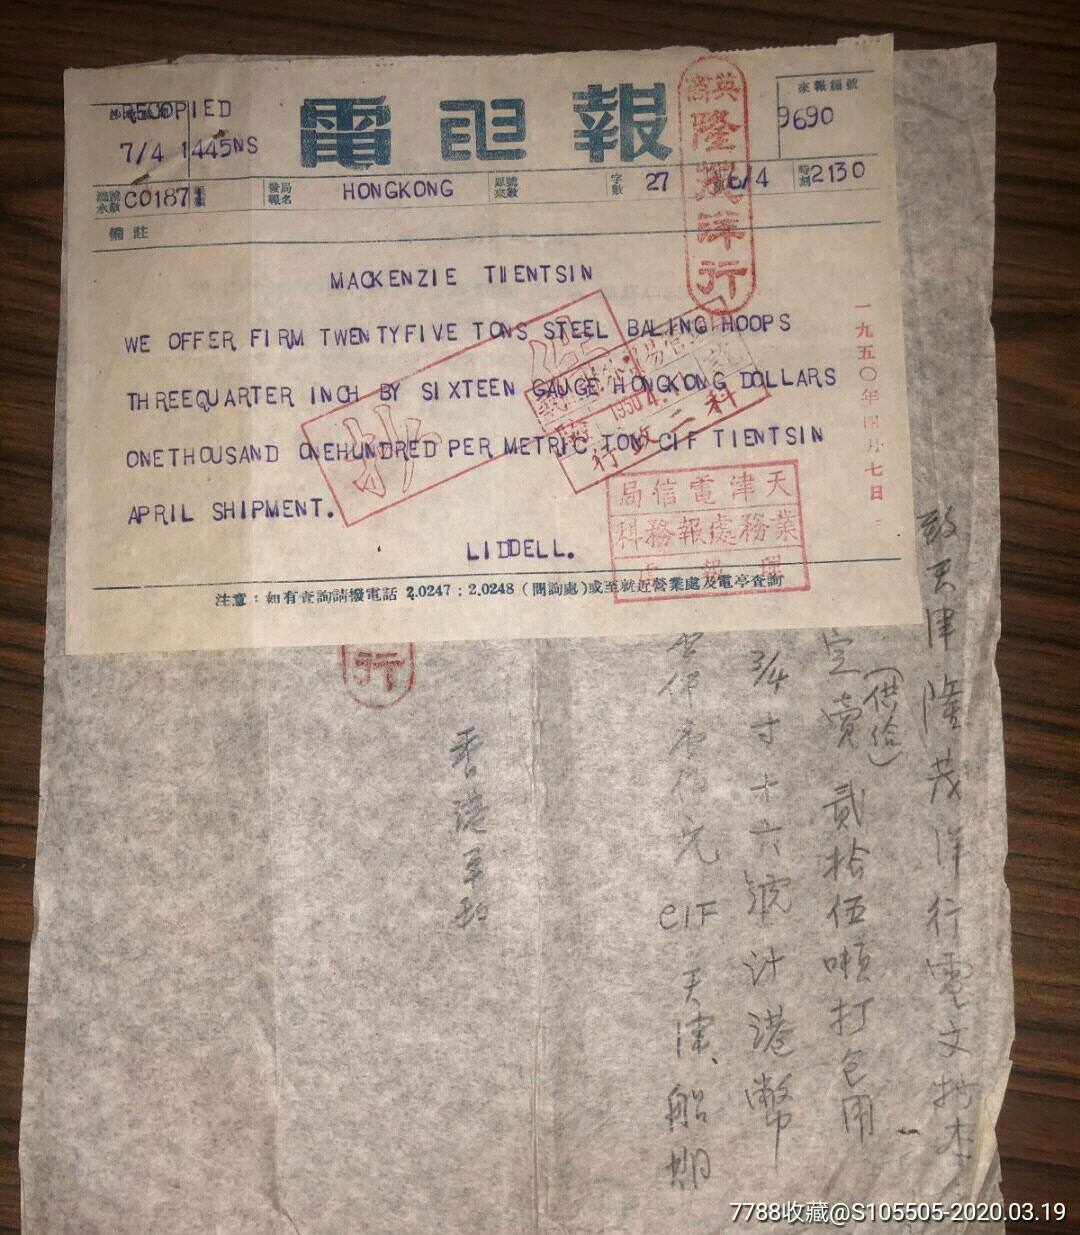 RECOPIED
7/4 1445NS
電 報
來報編號
9690
C0187
發報局名
HONGKONG
字數
27
6/4
時刻
2130
備註
英商
隆茂洋行
MACKENZIE TIENTSIN
WE OFFER FIRM TWENTYFIVE TONS STEEL BALING HOOPS
THREEQUARTER INCH BY SIXTEEN GAUGE HONGKONG DOLLARS
ONETHOUSAND ONEHUNDRED PER METRIC TON CIF TIENTSIN
APRIL SHIPMENT.
LIDDELL.
一九五〇年四月七日
抄
1950.4.
行政二科
天津電信局
業務處報務科
注意：如有查詢請撥電話 2.0247：2.0248（問詢處）或至就近營業處及電亭查詢
行
致天津隆茂洋行電文抄本
定賣（供給）貳拾伍噸打包用
3/4寸十六號計港幣
元 CIF 天津、船期
香港平和
7788收藏@S105505-2020.03.19